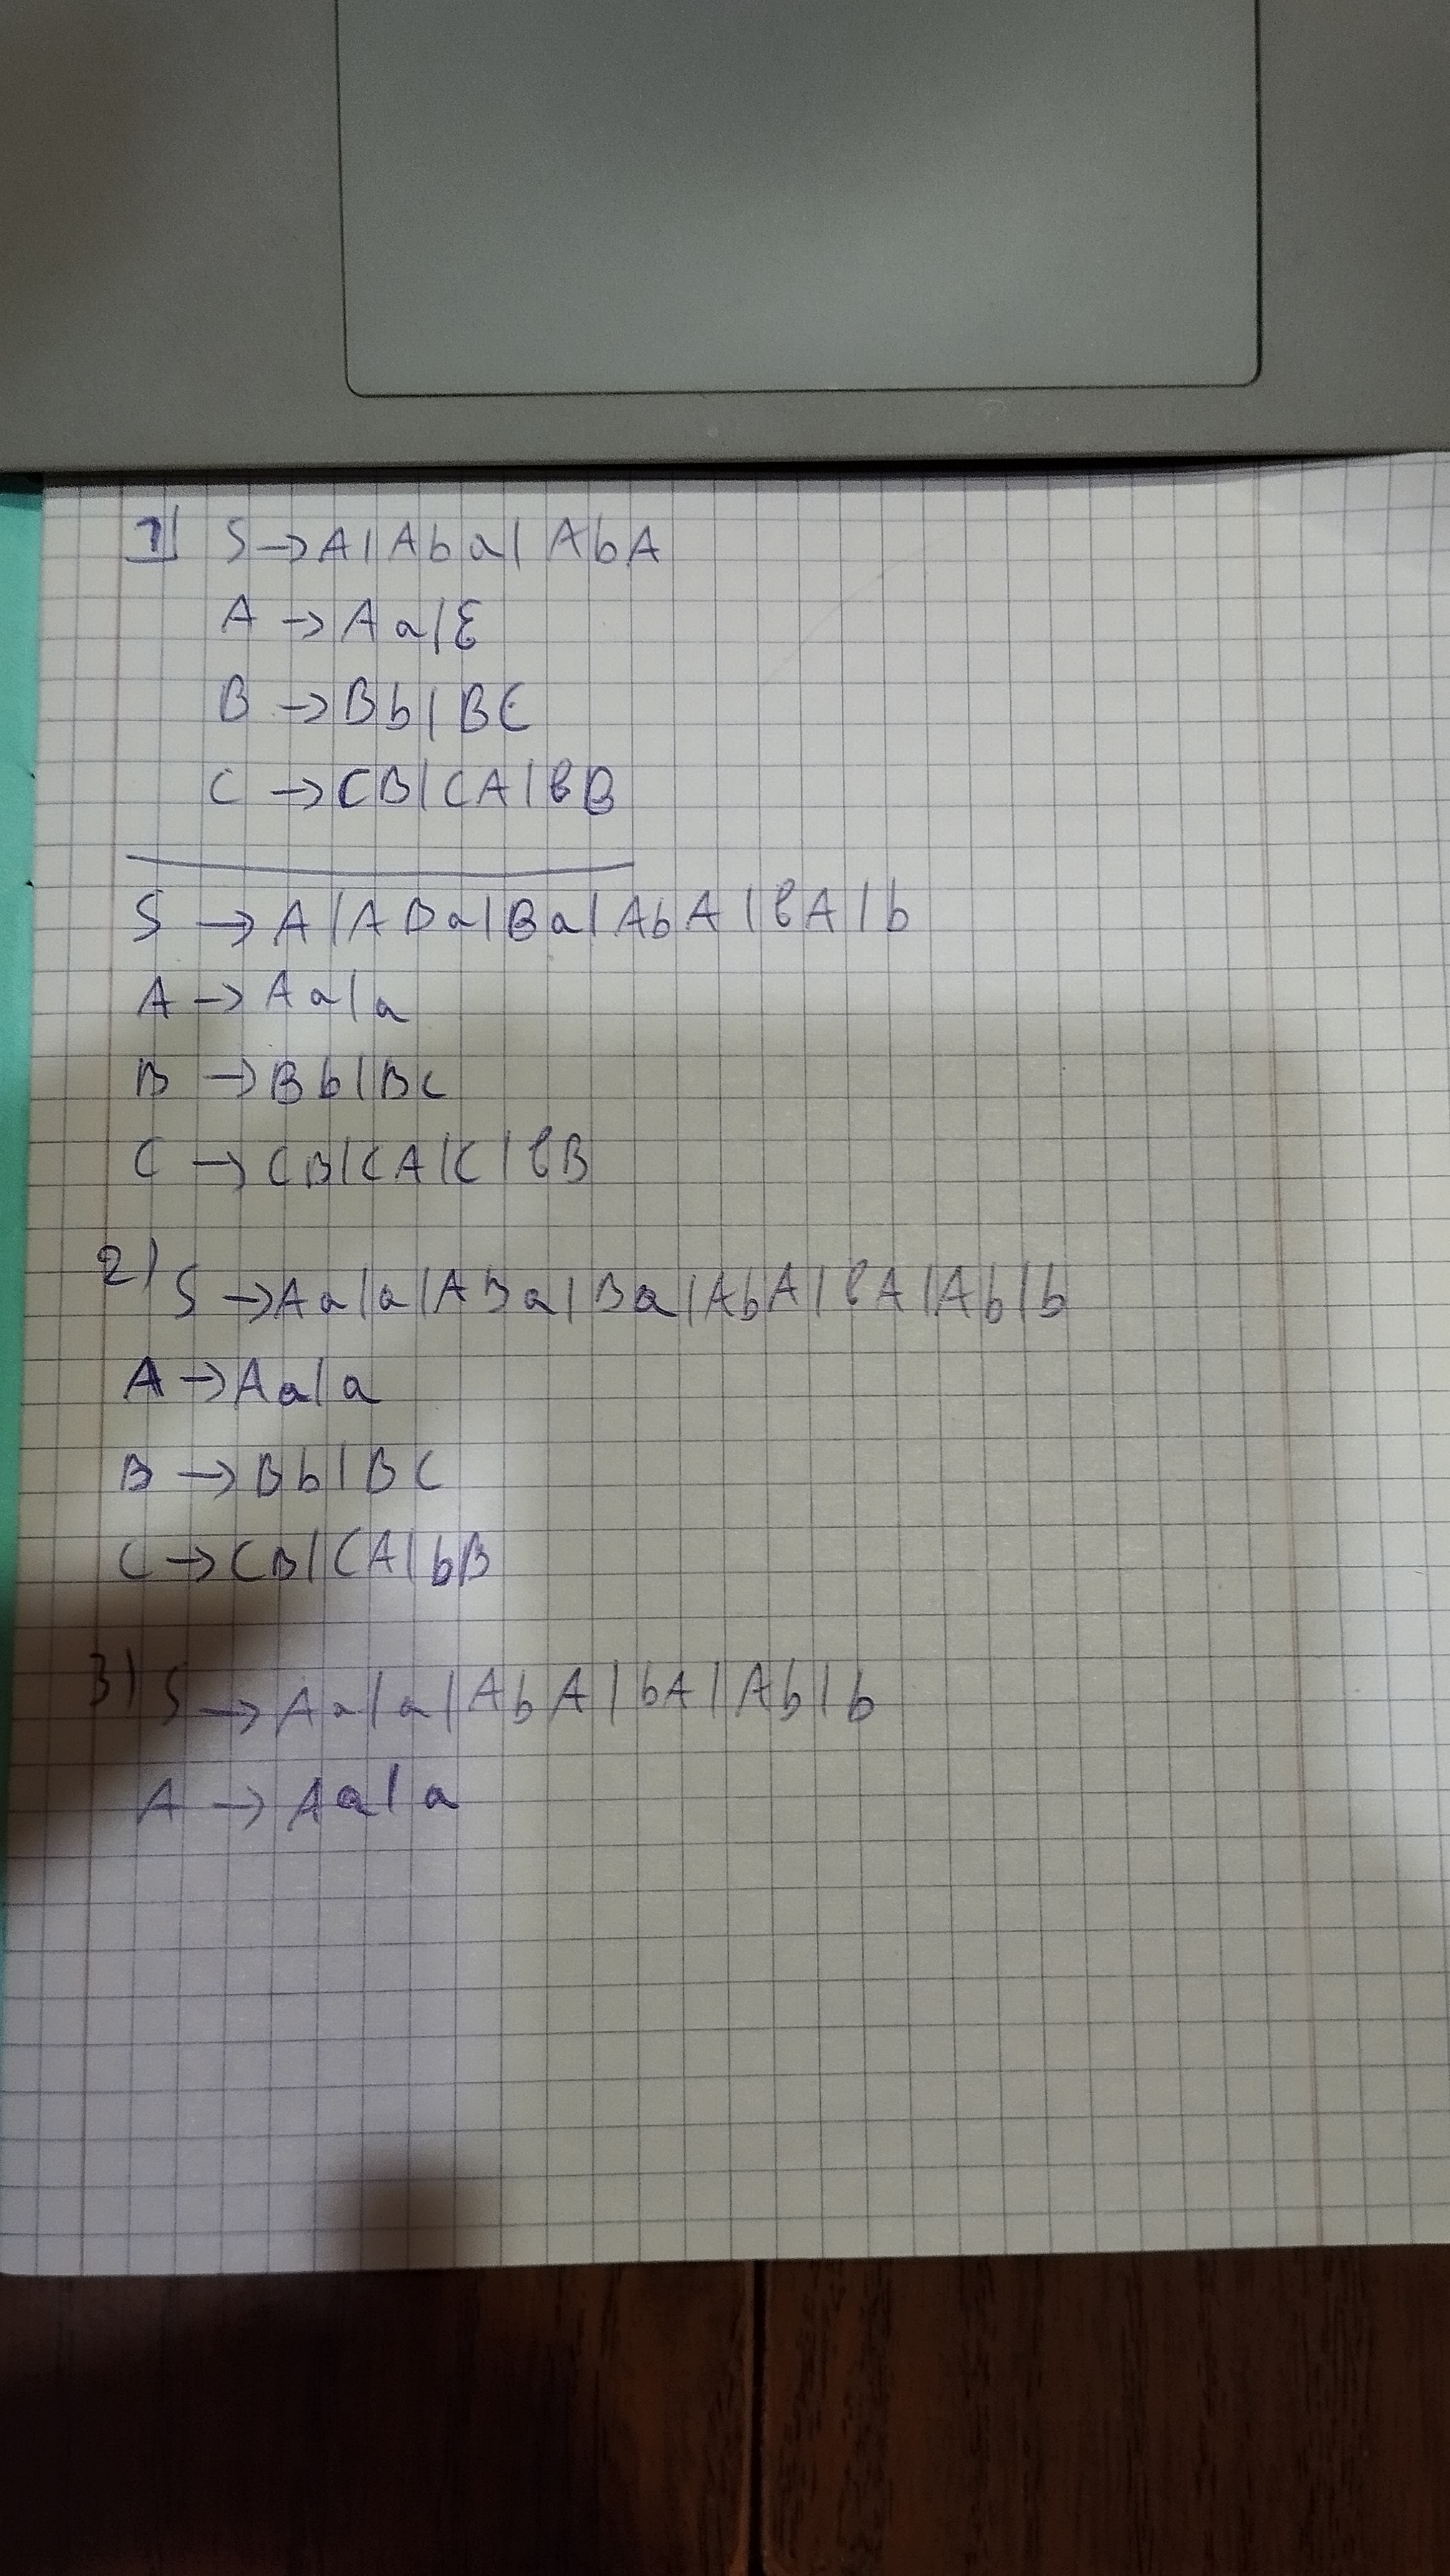 1) S → A | Aba | AbA
A → Aa | ε
B → Bb | BC
C → CB | CA | bB
S → A | ABa | Ba | AbA | bA | b
A → Aa | a
B → Bb | BC
C → CB | CA | C | bB
2) S → Aa | a | ABa | Ba | AbA | bA | Ab | b
A → Aa | a
B → Bb | BC
C → CB | CA | bB
3) S → Aa | a | AbA | bA | Ab | b
A → Aa | a